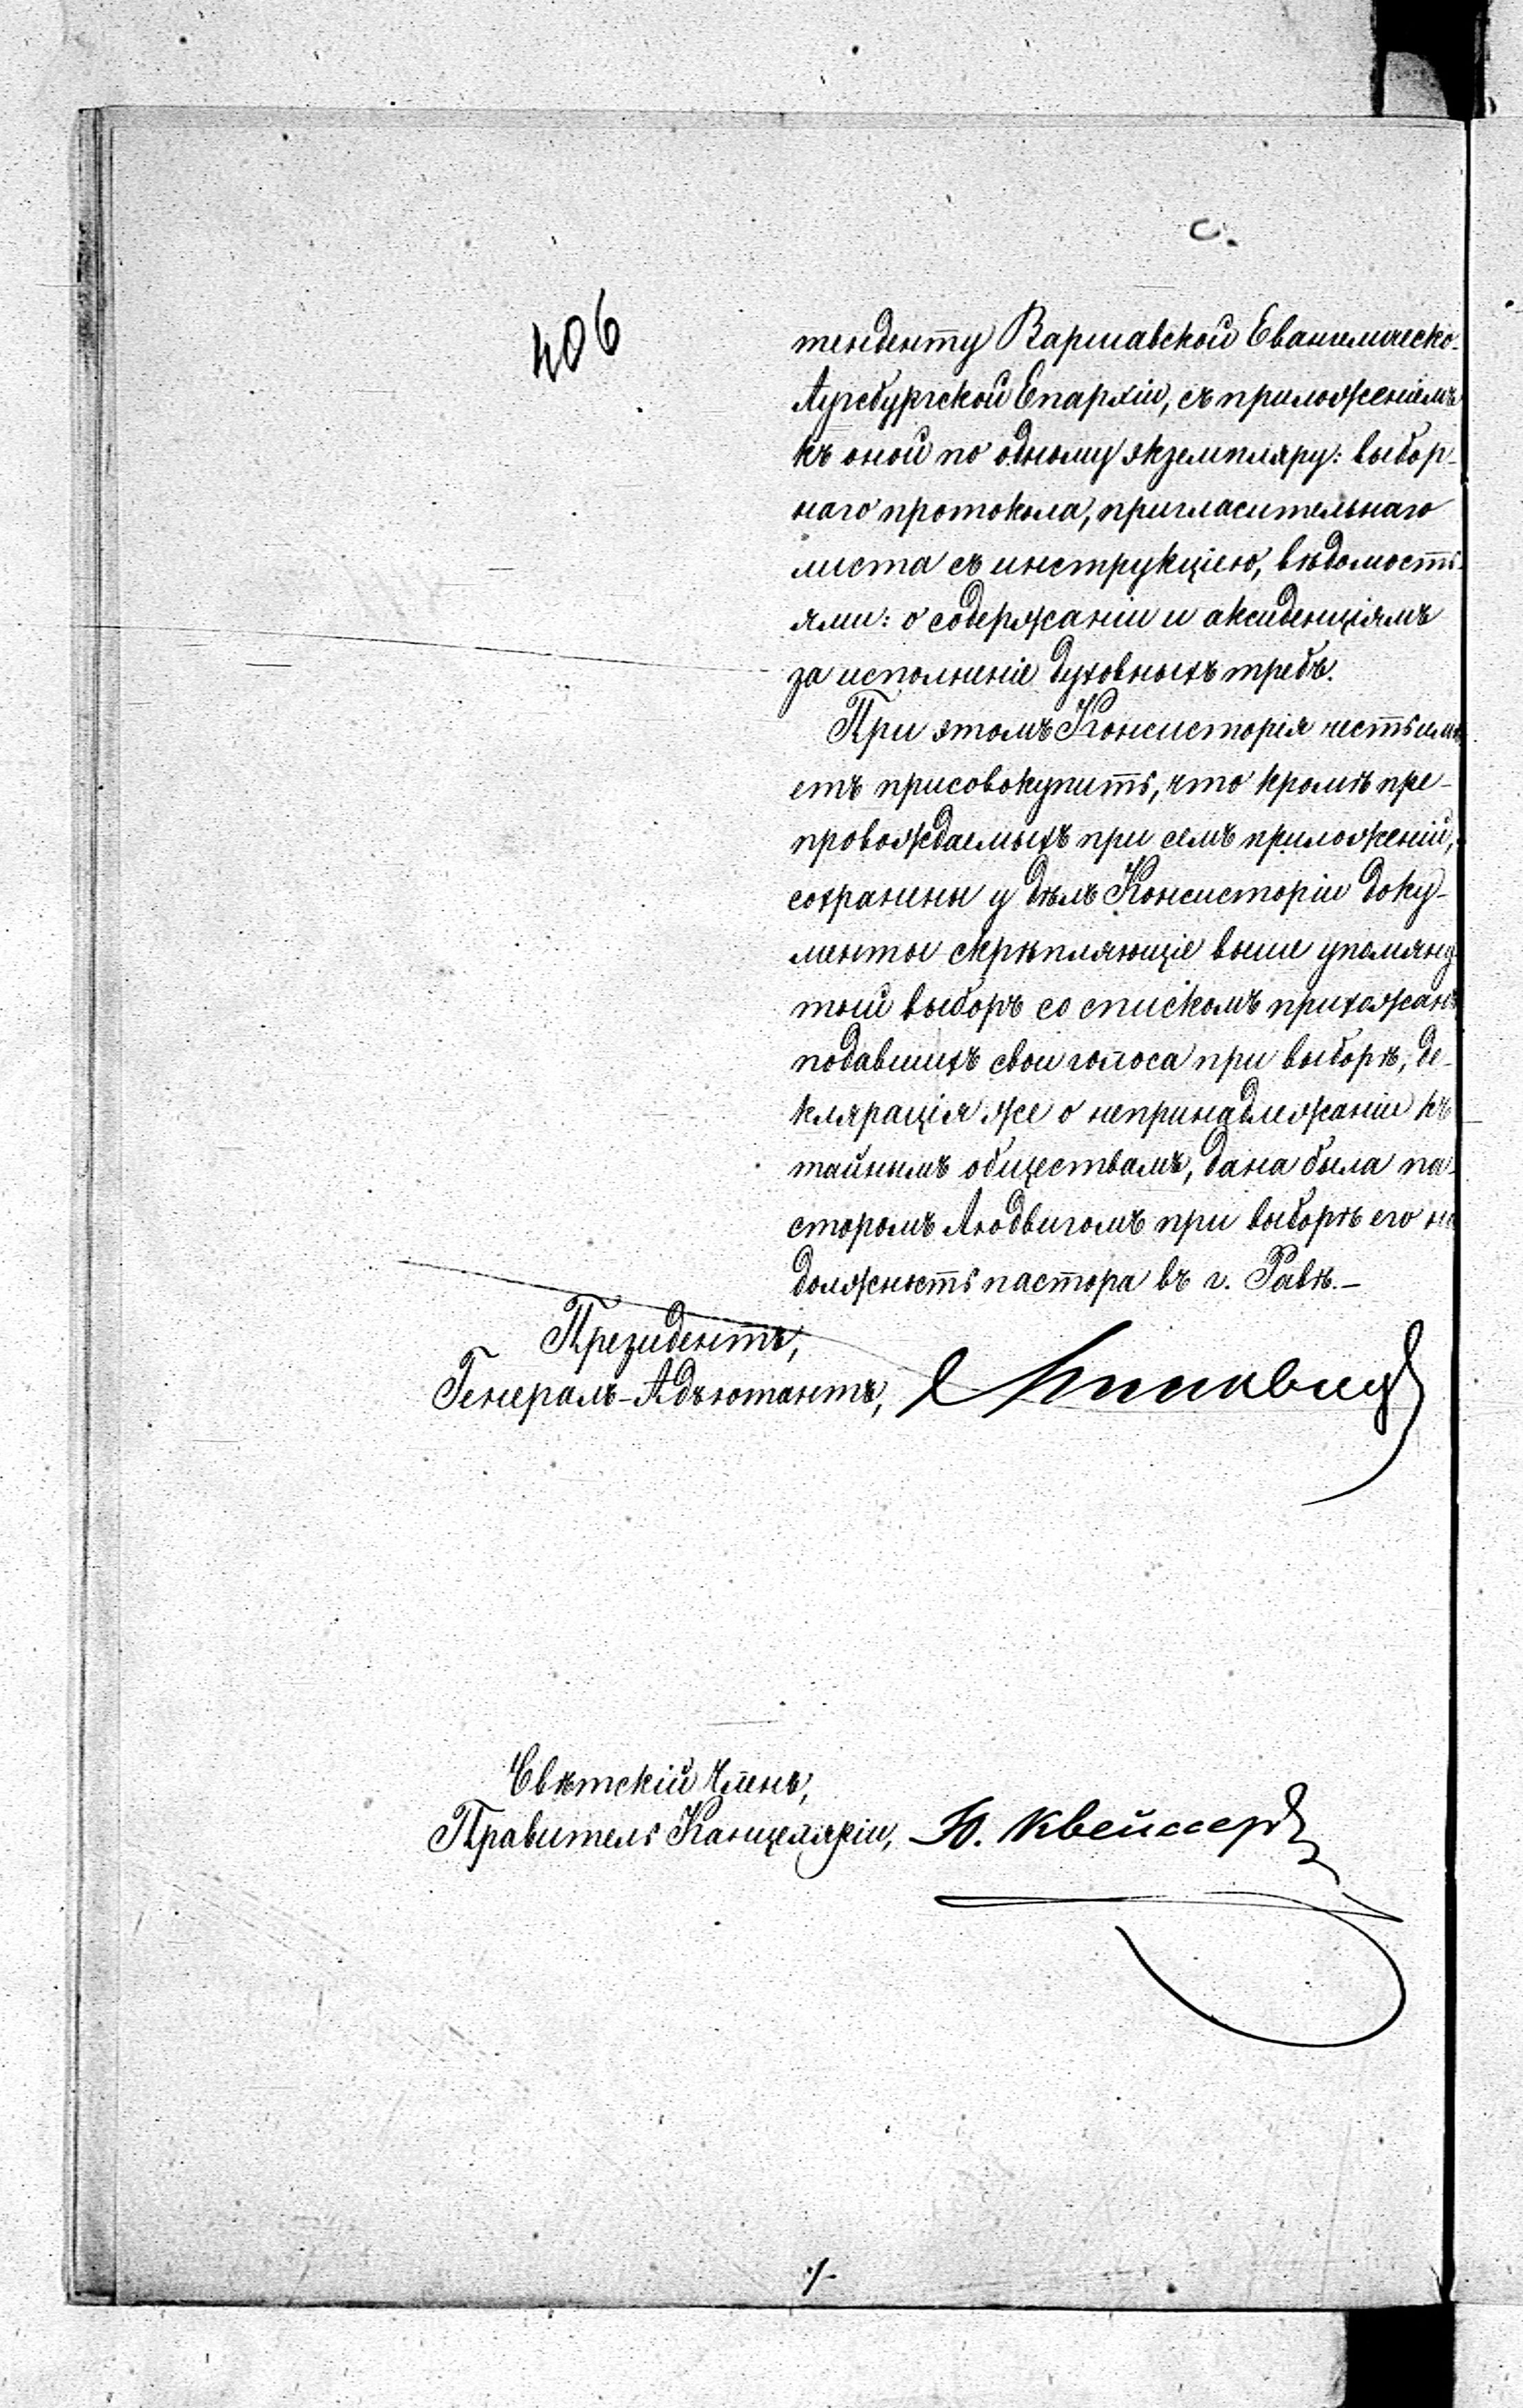 с.
406
тенденту Варшавской Евангелическо-
Аугсбургской Епархіи, съ приложеніемъ
къ оной по одному экземпляру: выбор-
наго протокола, пригласительнаго
листа съ инструкціею, вѣдомость-
ями: о содержаніи и акциденціямъ
за исполненіе духовныхъ требъ.
При этомъ Консисторія честь имѣ
етъ присовокупить, что кромѣ пре-
провождаемыхъ при семъ приложеній,
сохранены у дѣлъ Консисторіи доку-
менты скрѣпляющіе выше упомяну
тый выборъ со спискомъ прихожанъ
подавшихъ свои голоса при выборѣ, де-
клярація же о непринадлежаніи къ
тайнымъ обществамъ, дана была па-
сторомъ Людвигомъ при выборѣ его на
должность пастора въ г. Равѣ.—
Президентъ,
Генералъ-Адъютантъ,
Свѣтскій Членъ,
Правитель Канцеляріи, Ю. Квейссеръ